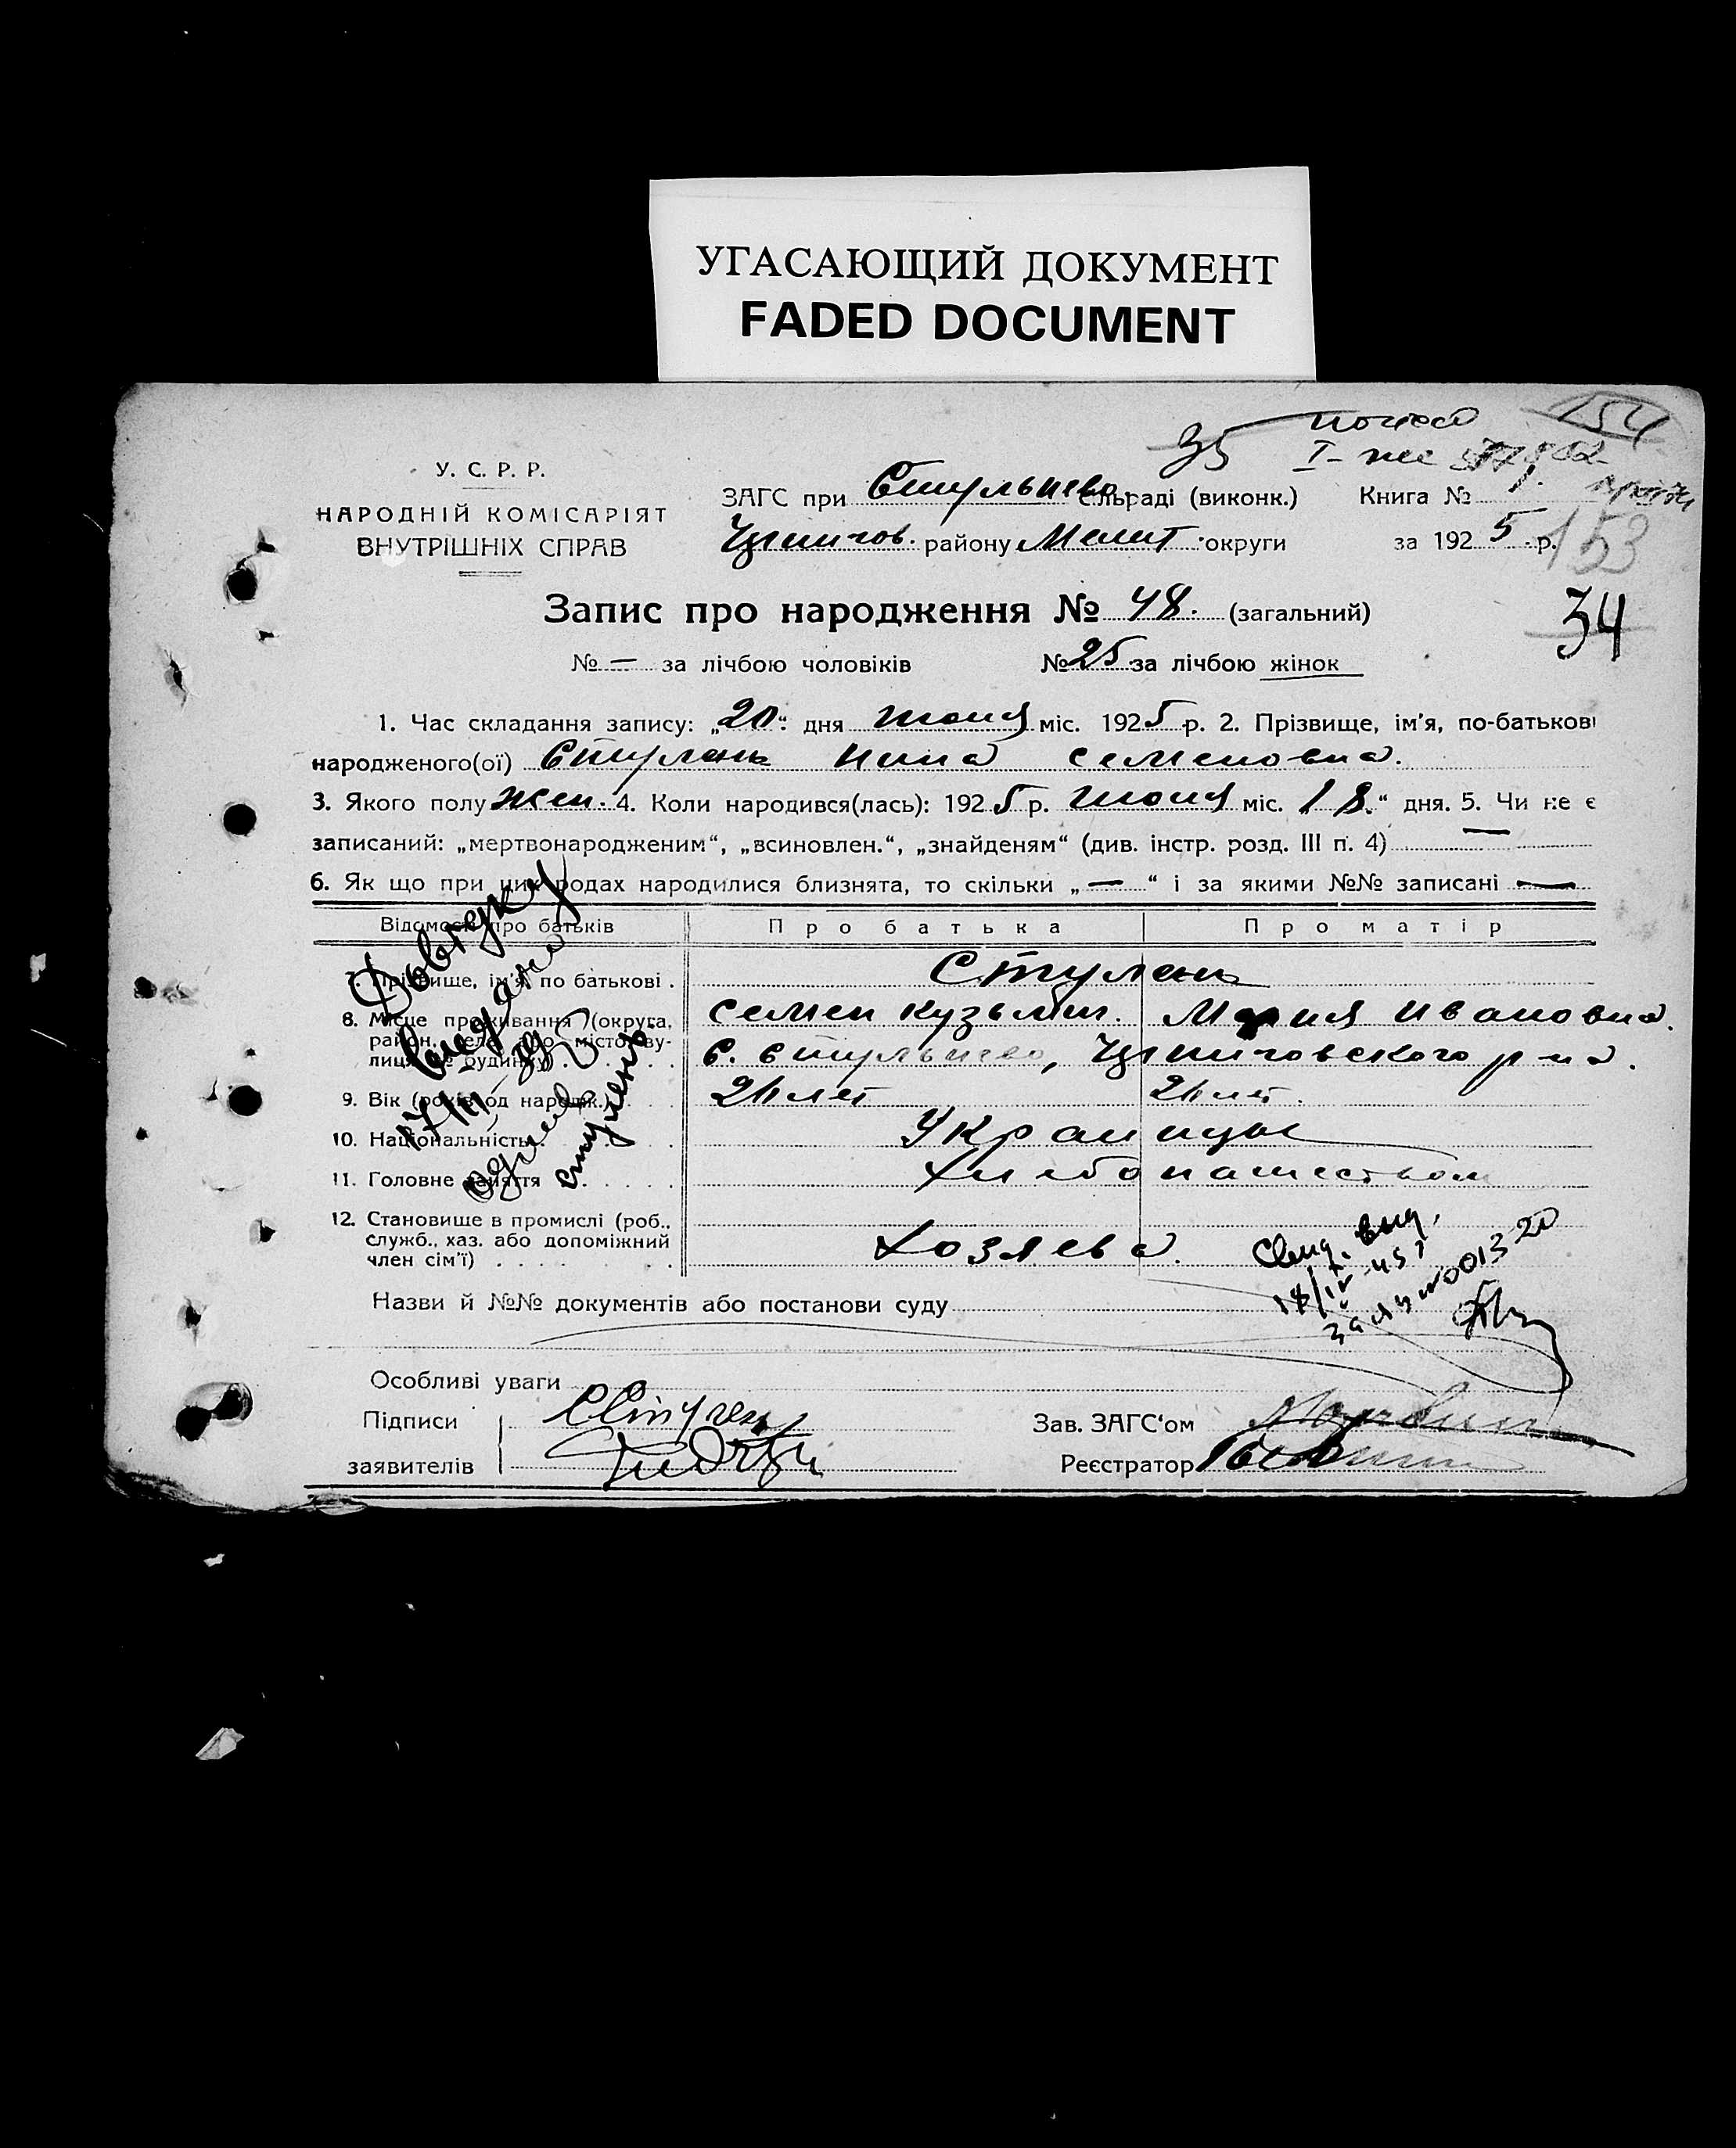 УГАСАЮЩИЙ ДОКУМЕНТ
FADED DOCUMENT
154
35
I-
У. С. Р. Р.
НАРОДНІЙ КОМІСАРІЯТ
ВНУТРІШНІХ СПРАВ
ЗАГС при Стульнево сільраді (виконк.) Книга № 1.
району Мелит. округи за 1925 р.
153
Запис про народження № 48. (загальний)
34
№ — за лічбою чоловіків № 25 за лічбою жінок
1. Час складання запису: „20“ дня июня міс. 1925 р. 2. Прізвище, ім'я, по-батькові
народженого(ої) Стулень Нина Семеновна.
3. Якого полу жен. 4. Коли народився(лась): 1925 р. июня міс. 18.“ дня. 5. Чи не є
записаний: „мертвонародженим“, „всиновлен.“, „знайденям“ (див. інстр. розд. III п. 4) —
6. Як що при цих родах народилися близнята, то скільки „—“ і за якими №№ записані —
Відомості про батьків Про батька Про матір
7. Прізвище, ім'я, по батькові . Стулень
Семен Кузьмич. Мария Ивановна.
8. Місце проживання (округа, район, село або місто, вулиця, № будинку) с. Стульнево, р-на.
9. Вік (років од народж.) лет лет.
10. Національність Украинцы
11. Головне заняття Хлебопашеством
12. Становище в промислі (роб.,
служб., хаз. або допоміжний
член сім'ї) Хозяева.
Довідку
видано
Стулень.
Свид. выд.
Назви й №№ документів або постанови суду
Особливі уваги
Підписи Стулень Зав. ЗАГС'ом
заявителів Реєстратор